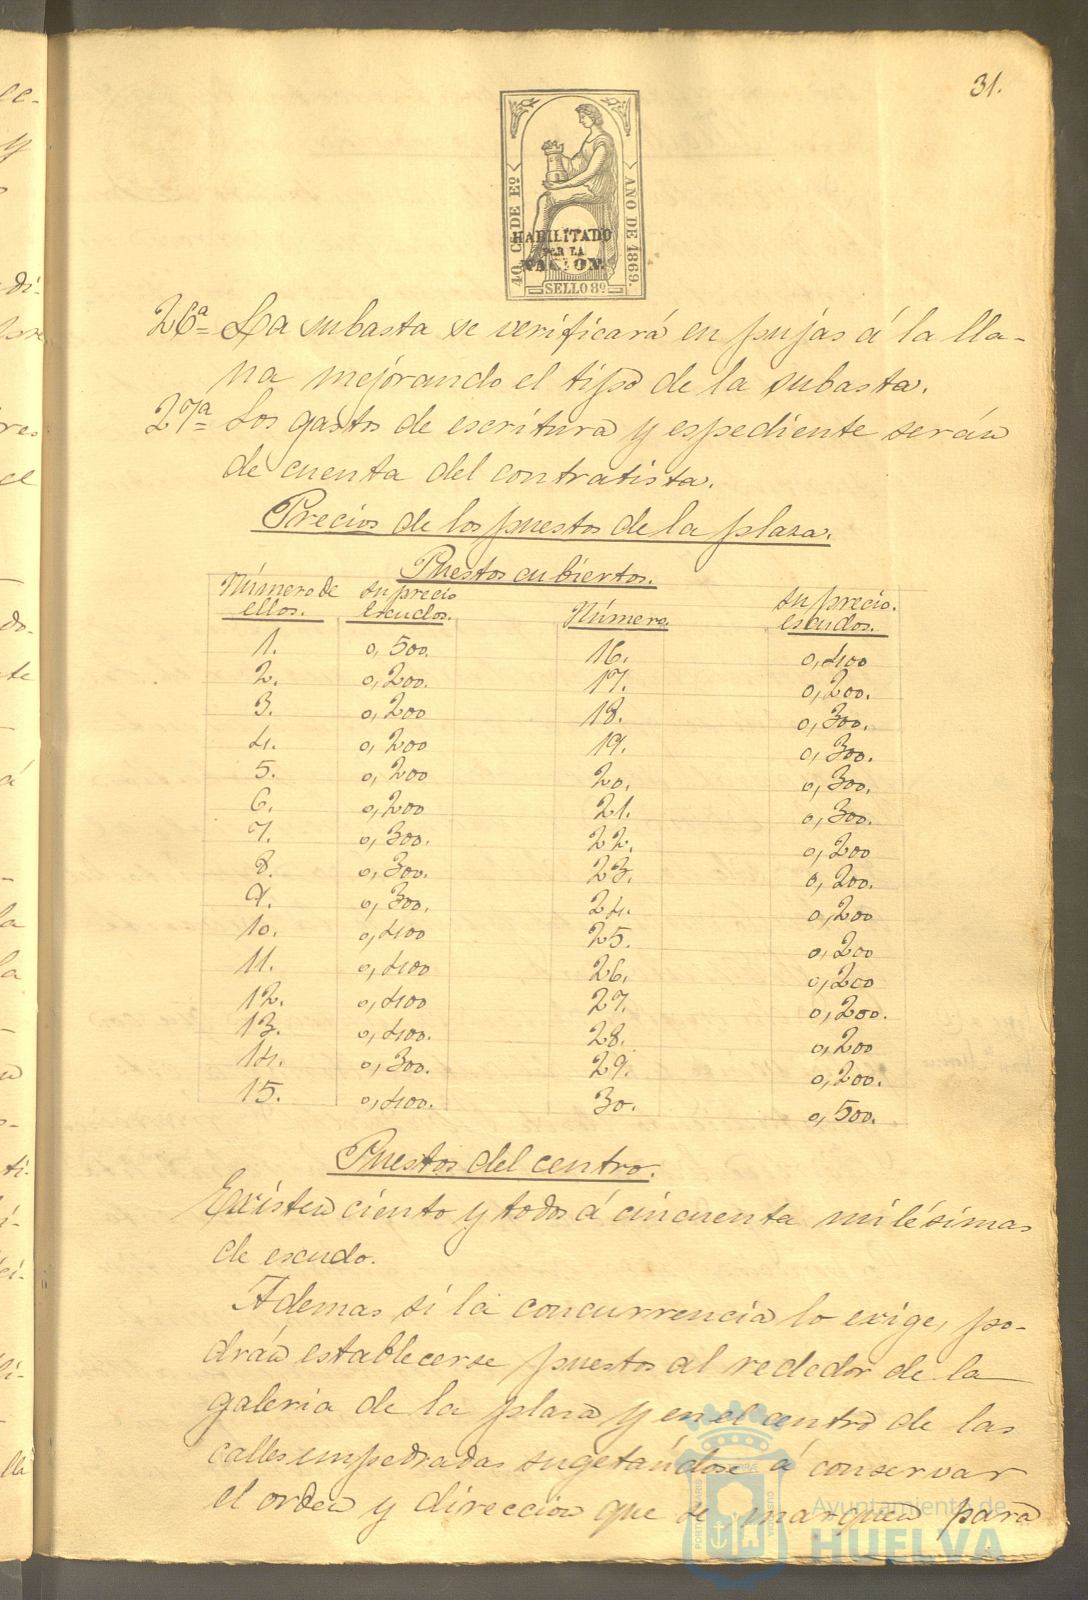 31.
40. C. DE Eº
AÑO DE 1869.
HABILITADO
POR LA
NACION.
SELLO 8º
26ª= La subasta se verificará en pujas á la lla-
na mejorando el tipo de la subasta.
27ª= Los gastos de escritura y espediente serán
de cuenta del contratista.
Precios de los puestos de la plaza.
Puestos cubiertos.
Número de ellos. su precio escudos. Número. su precio. escudos.
1. 0,500. 16. 0,400
2. 0,200. 17. 0,200.
3. 0,200 18. 0,300.
4. 0,200 19. 0,300.
5. 0,200 20. 0,300.
6. 0,200 21. 0,300.
7. 0,300. 22. 0,200
8. 0,300. 23. 0,200.
9. 0,300. 24. 0,200
10. 0,400 25. 0,200
11. 0,400 26. 0,200
12. 0,400 27. 0,200.
13. 0,400. 28. 0,200
14. 0,300. 29. 0,200.
15. 0,400. 30. 0,500.
Puestos del centro.
Existen ciento y todos á cincuenta milésimas
de escudo.
Ademas si la concurrencia lo exige, po-
drán establecerse puestos al rededor de la
galeria de la plaza y en el centro de las
calles empedradas sugetándose á conservar
el orden y direccion que se marquen para
Ayuntamiento de
HUELVA